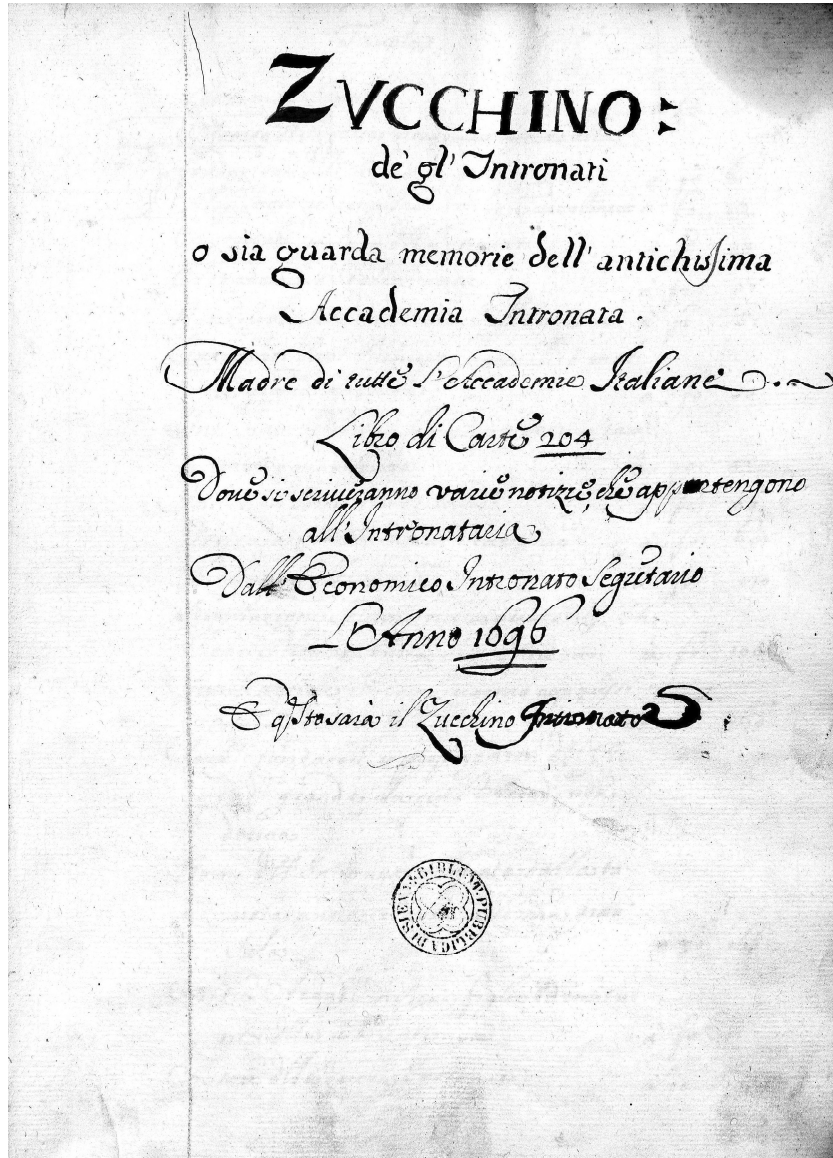 ZVCCHINO:
de' gl' Intronati
o sia guarda memorie dell' antichissima
Accademia Intronata.
Madre di tutte l'Accademie Italiane
Libro di Carte 204
Dove si scriveranno varie notizie, che appartengono
all'Intronataria
Dall'Economico Intronato Segretario
L'Anno 1696
E qsto sarà il Zucchino Intronato
BIBLIOT. PUBBLICA DI SIENA